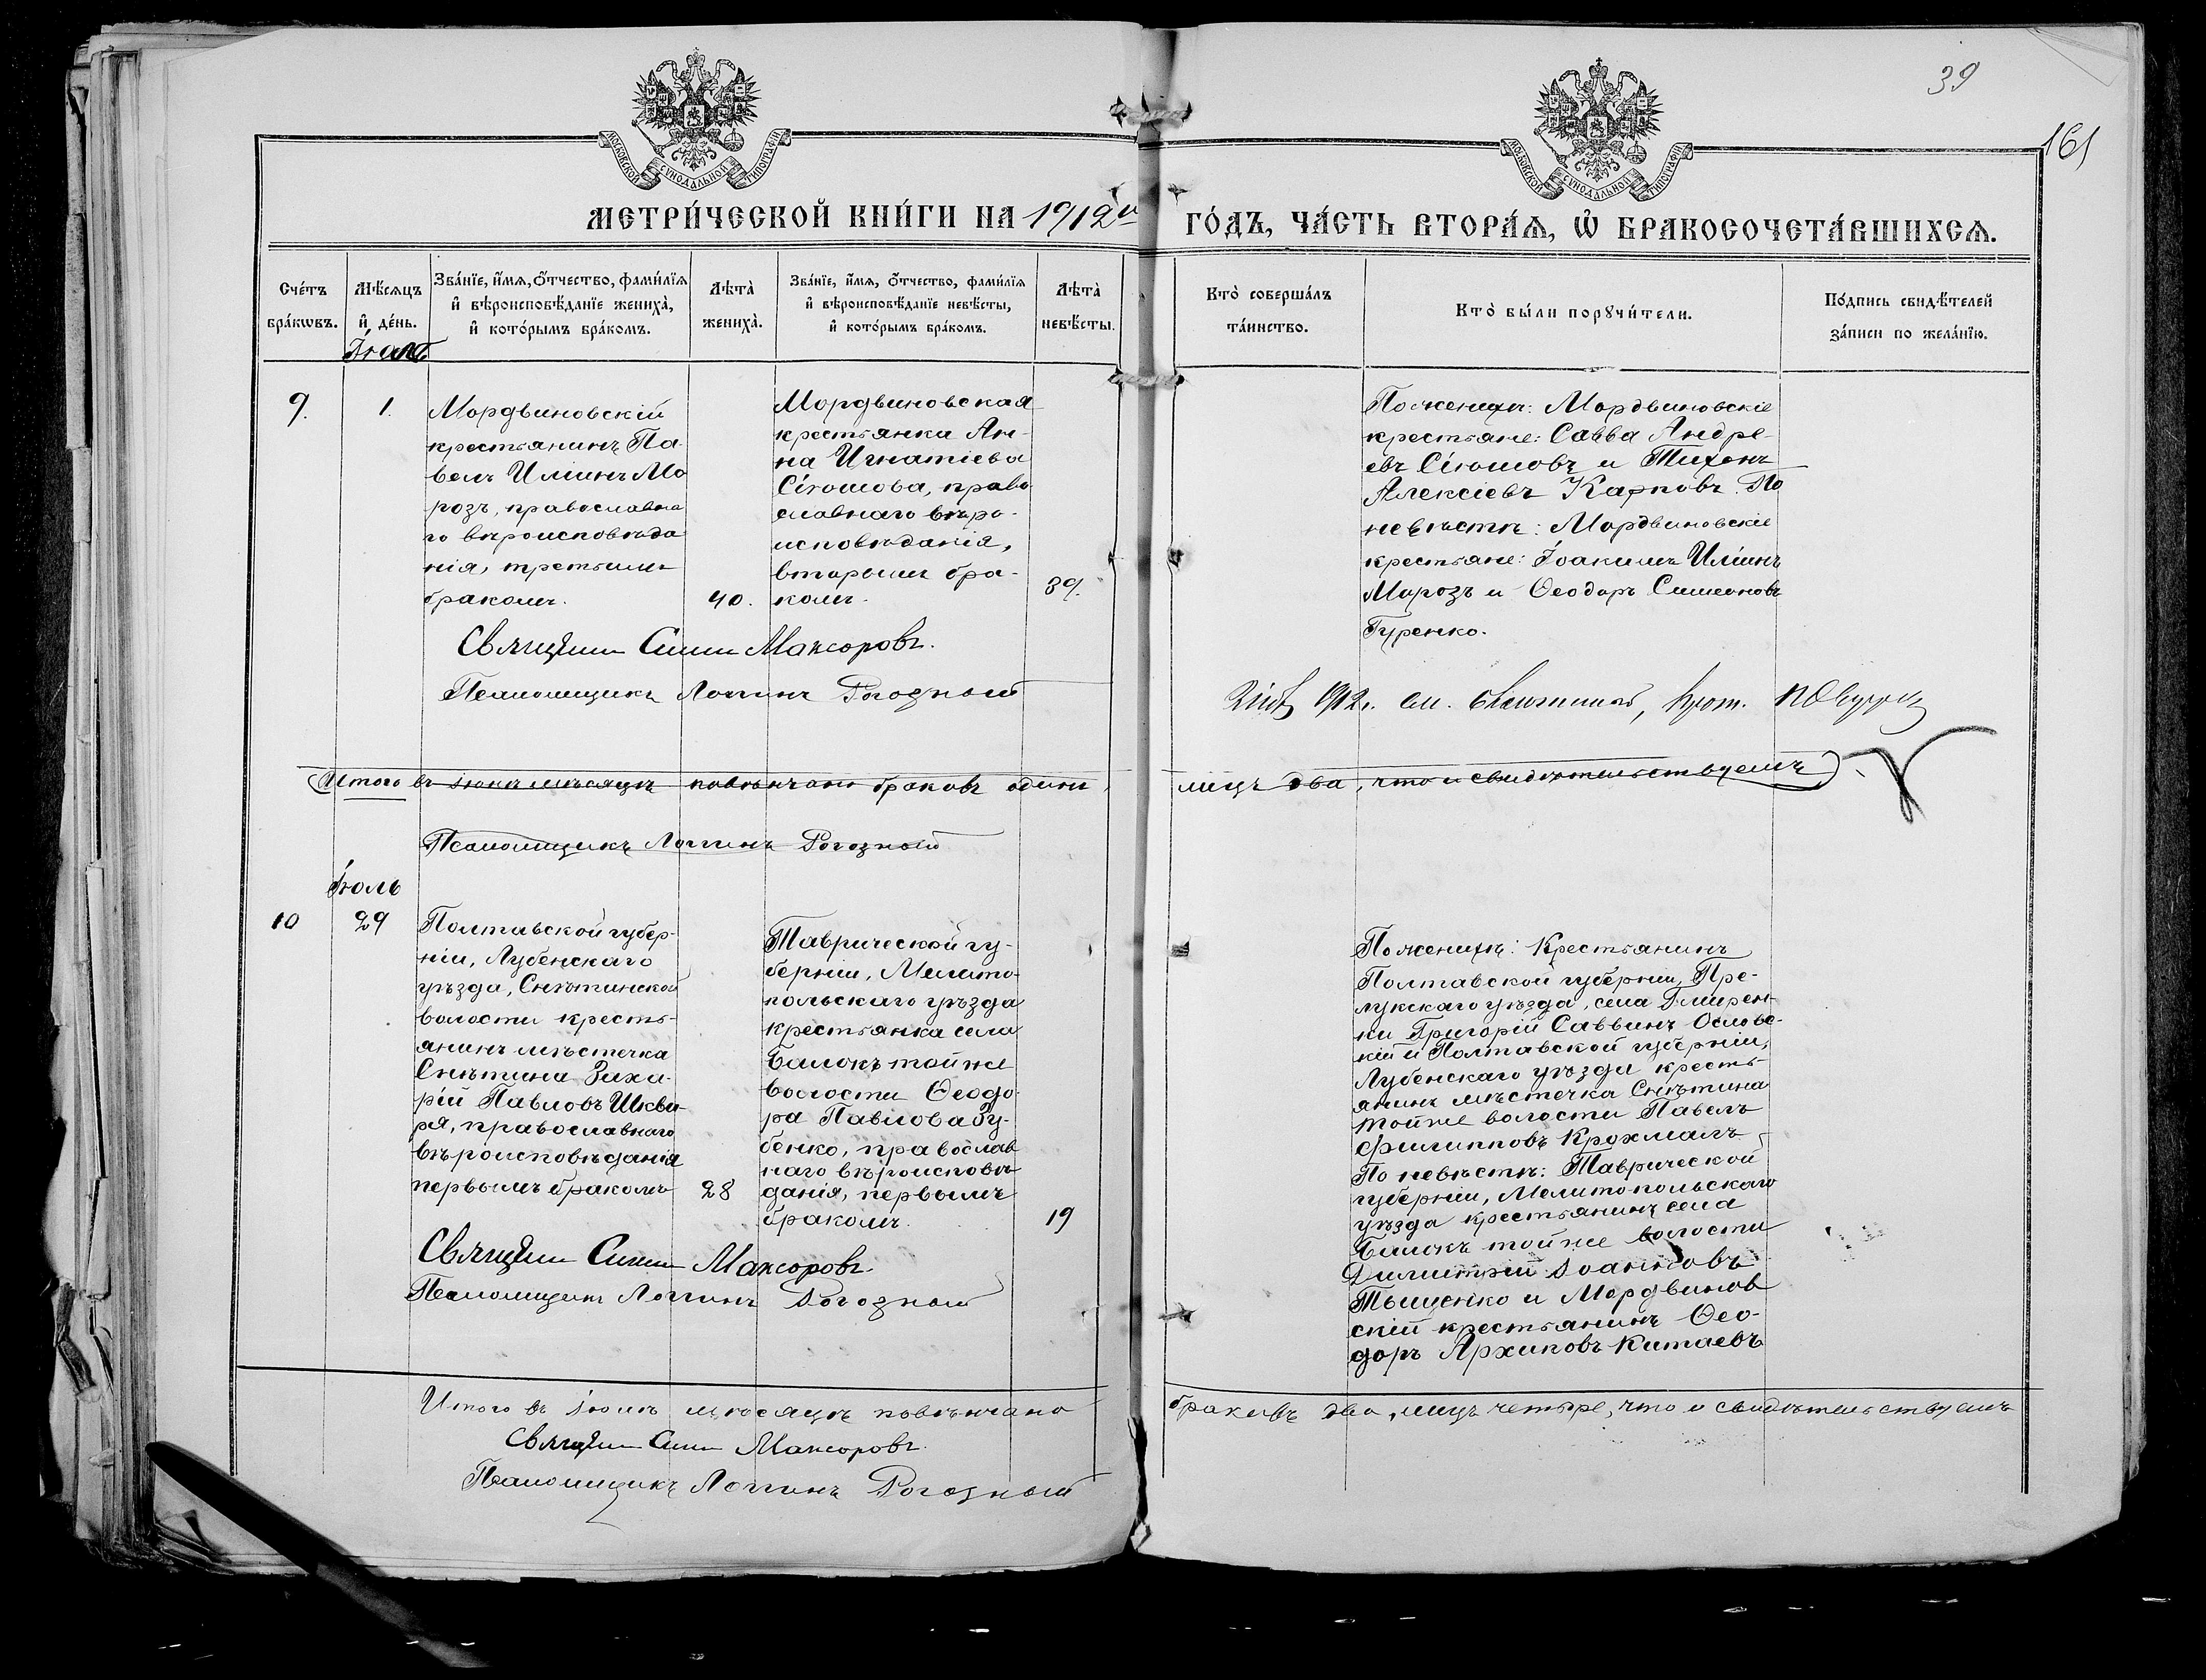 39
161
МОСКОВСКОЙ СѴНОДАЛЬНОЙ ТИПОГРАФІИ
МОСКОВСКОЙ СѴНОДАЛЬНОЙ ТИПОГРАФІИ
МЕТРИ́ЧЕСКОЙ КНИ́ГИ НА 1912й ГО́ДЪ, ЧА́СТЬ ВТОРА́Ѧ, Ѡ҆ БРАКОСОЧЕТА́ВШИХСѦ.
Сче́тъ
бра́кѡвъ.
Мѣ́сѧцъ
и҆ де́нь.
Зва́нїе, и҆́мѧ, о҆́тчество, фами́лїѧ
и҆ вѣроисповѣ́данїе жениха̀,
и҆ кото́рымъ бра́комъ.
Лѣта̀
жениха̀.
Зва́нїе, и҆́мѧ, о҆́тчество, фами́лїѧ
и҆ вѣроисповѣ́данїе невѣ́сты,
и҆ кото́рымъ бра́комъ.
Лѣта̀
невѣ́сты.
Кто̀ соверша́лъ
та́инство.
Кто̀ бы́ли порꙋчи́тели.
По́дпись свидѣ́телей
за́писи по жела́нїю.
Іюль
9.
1.
Мордвиновскій
крестьянинъ Па-
велъ Иліинъ Мо
розъ, православна
го вѣроисповѣда
нія, третьимъ
бракомъ.
40.
Мордвиновская
крестьянка Ан-
на Игнатіева
Сѣюшова, право
славнаго вѣро-
исповѣданія,
вторымъ бра-
комъ.
39.
По женихѣ: Мордвиновскіе
крестьяне: Савва Андре-
евъ Сѣюшовъ и Тихонъ
Алексіевъ Карповъ. По
невѣстѣ: Мордвиновскіе
крестьяне: Іоакимъ Иліинъ
Морозъ и Ѳеодоръ Симеоновъ
Гуренко.
Священникъ Максоровъ.
Псаломщикъ Логгинъ Рогозный
1912г.
Итого въ іюнѣ мѣсяцѣ повѣнчано браковъ одинъ, лицъ два, что и свидѣтельствуемъ
Псаломщикъ Логгинъ Рогозный
Іюль
10
29
Полтавской губер-
ніи, Лубенскаго
уѣзда, Снѣтинской
волости кресть-
янинъ мѣстечка
Снѣтина Заха-
рій Павловъ Шква-
ря, православнаго
вѣроисповѣданія
первымъ бракомъ
28
Таврической гу-
берніи, Мелито-
польскаго уѣзда
крестьянка села
Балокъ той же
волости Ѳеодо-
ра Павлова Зу-
бенко, православ
наго вѣроисповѣ-
данія, первымъ
бракомъ.
19
По женихѣ: Крестьянинъ
Полтавской губерніи, Пре-
лукскаго уѣзда, села
Григорій СаввинъОсловс-
кій и Полтавской губерніи,
Лубенскаго уѣзда кресть-
янинъ мѣстечка Снѣтина
той же волости Павелъ
Филипповъ Крохмаль
По невѣстѣ: Таврической
губерніи, Мелитопольскаго
уѣзда крестьянинъ села
Балокъ той же волости
Димитрій Іоанновъ
Тыщенко и Мордвинов
скій крестьянинъ Ѳео-
доръ Архиповъ Китаевъ
Священникъ Максоровъ.
Псаломщикъ Логгинъ Рогозный
Итого въ іюлѣ мѣсяцѣ повѣнчано браковъ два, лицъ четыре, что и свидѣтельствуемъ
Священникъ Максоровъ.
Псаломщикъ Логгинъ Рогозный